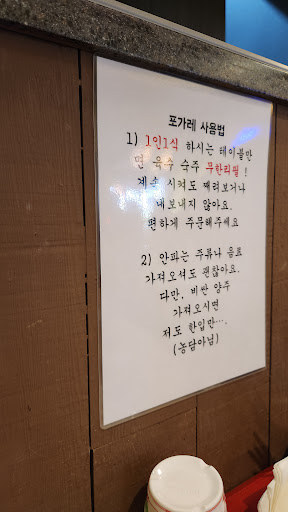 포가레 사용법
1) 1인1식 하시는 테이블만
면 육수 숙주 무한리필!
계속 시켜도 째려보거나
내보내지 않아요.
편하게 주문해주세요
2) 안파는 주류나 음료
가져오셔도 괜찮아요.
다만, 비싼 양주
가져오시면
저도 한입만....
(농담아님)